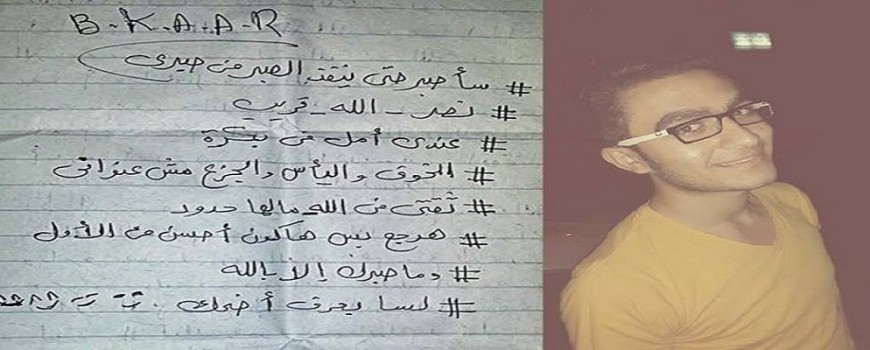 B.K.A.A.R
# سأصبر حتى ينفذ الصبر من صبرى
# نصر _ الله _ قريب
# عندى أمل فى بكرة
# الخوف واليأس والجزع مش عنوانى
# ثقتى فى الله مالها حدود
# هرجع بس هاكون أحسن من الأول
# وما صبرك إلا بالله
# لسا بعرف أضحك